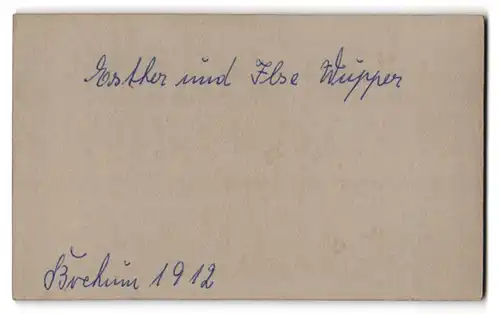 Esther und Ilse Wupper
Bochum 1912